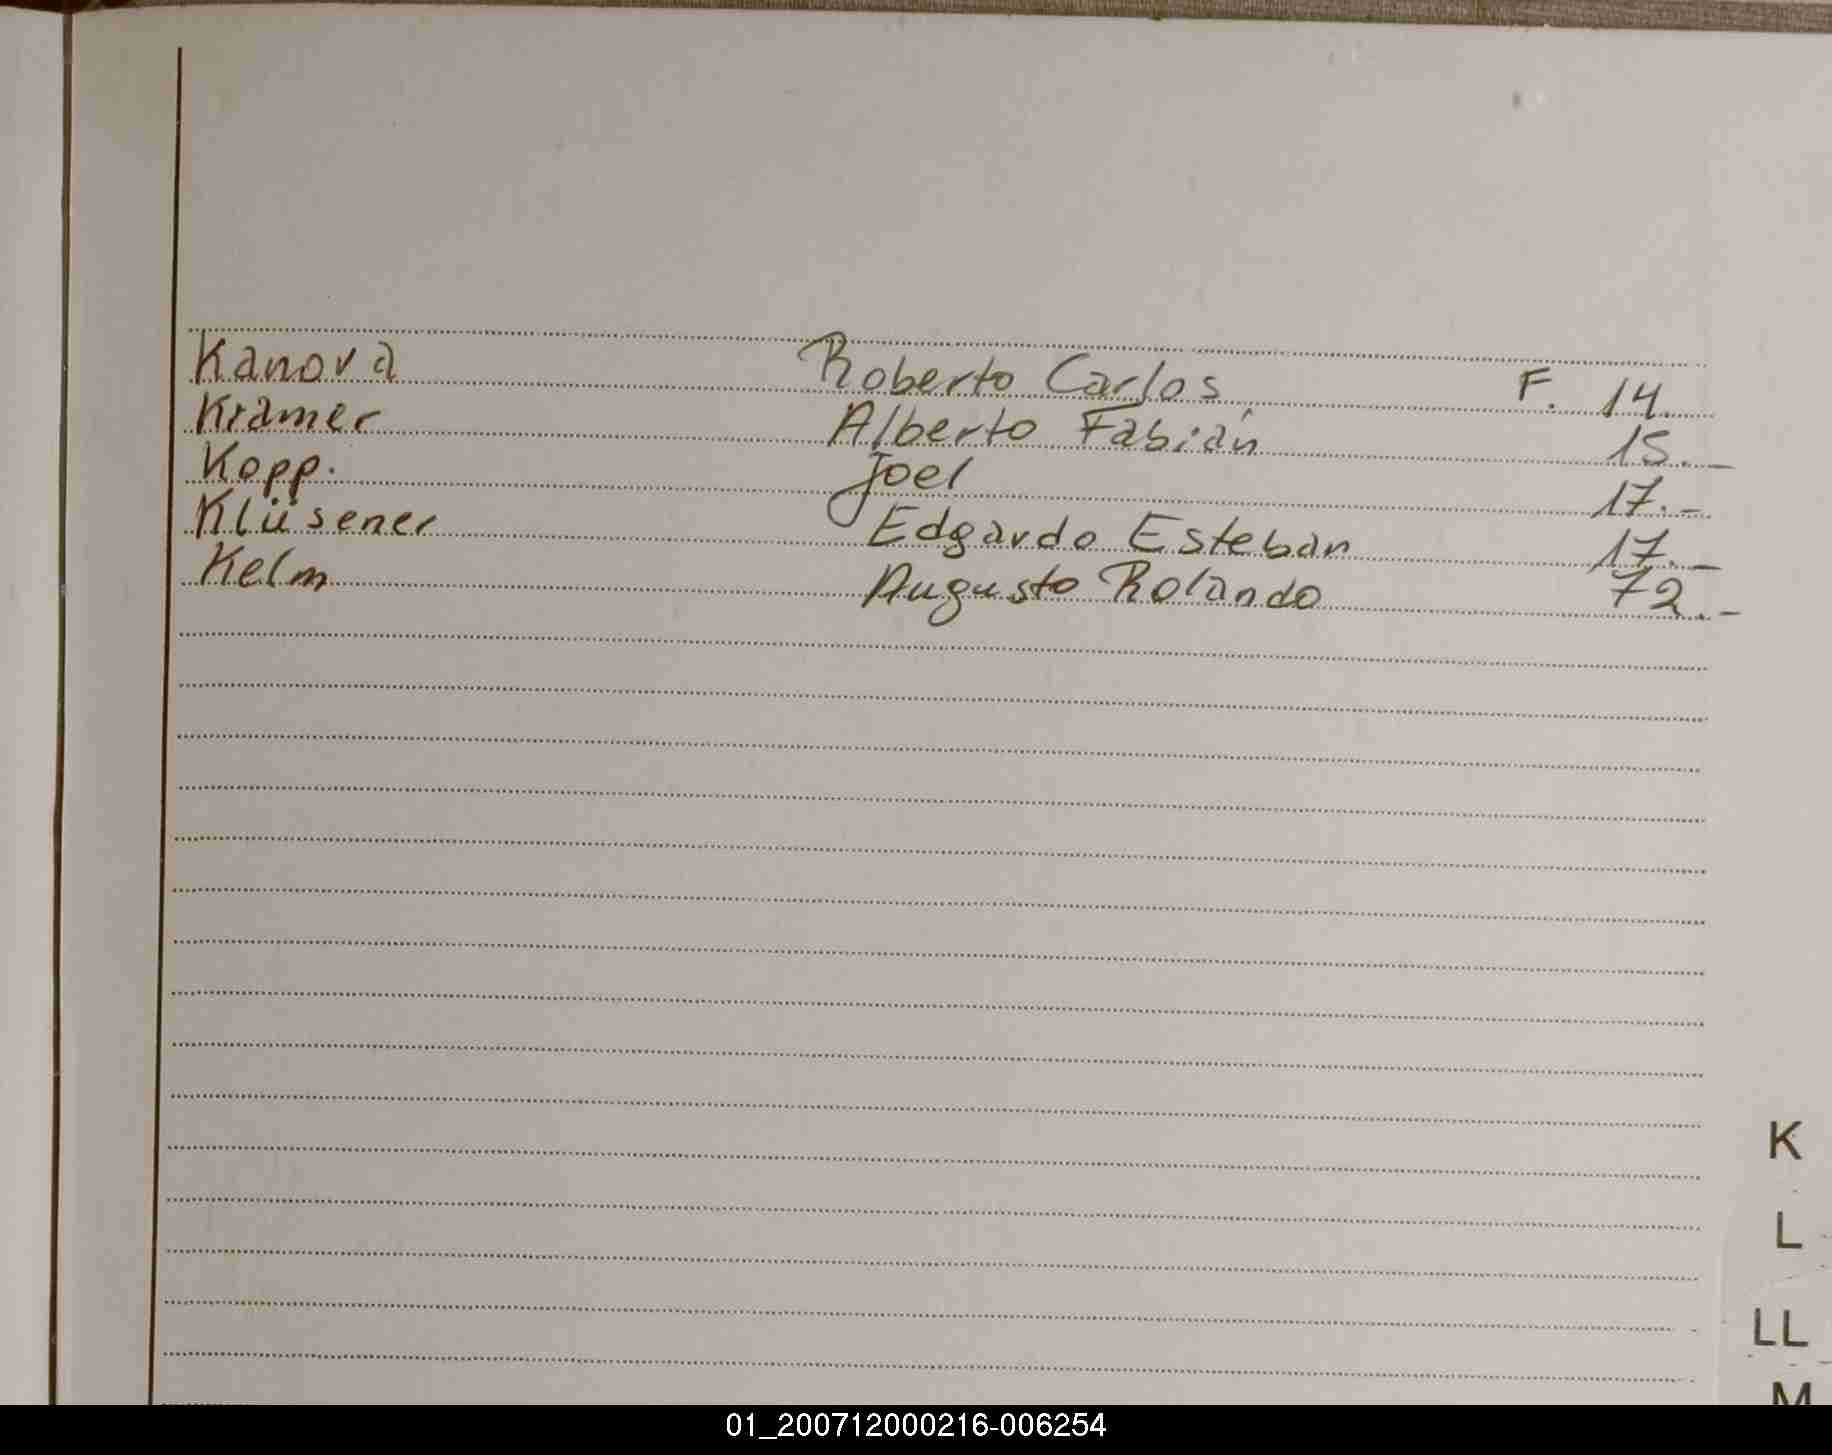 Kanova Roberto Carlos F. 14.
Kramer Alberto Fabián 15.-
Kopp. Joel 17.-
Klüsener Edgardo Esteban 17.-
Kelm Augusto Rolando 72.-
K
L
LL
M
01_200712000216-006254